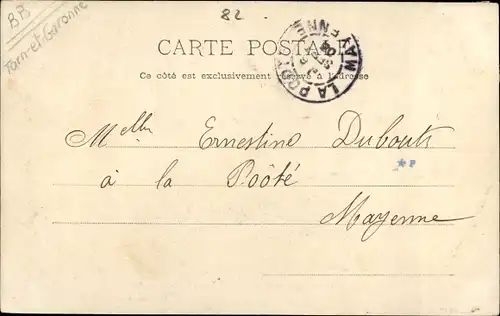 BB
Tarn-et-Garonne
82
CARTE POSTALE
Ce côté est exclusivement réservé à l'adresse
Melle Ernestine Dubouts
à la Pôôté
Mayenne
LA POOTÉ
MAYENNE